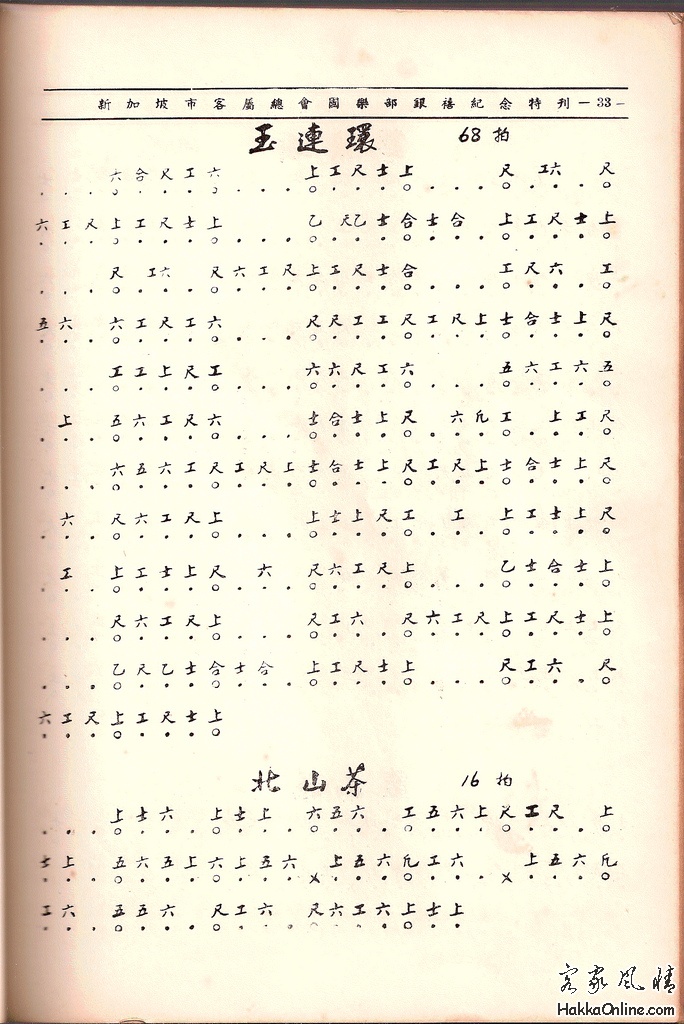 新加坡市客屬總會國樂部銀禧紀念特刊 —33—
玉連環 68拍
六合尺工六 上工尺士上 尺 工六 尺
六工尺上工尺士上 乙 尺乙士合士合 上工尺士上
尺 工六 尺六工尺上工尺士合 工尺六 工
五六 六工尺工六 尺尺工工尺工尺上士合士上尺
工工上尺工 六六尺工六 五六工六五
上 五六工尺六 士合士上尺 六凡工 上工尺
六五六工尺工尺上士合士上尺工尺上士合士上尺
六 尺六工尺上 上士上尺工 工 上工士上尺
工 上工士上尺 六 尺六工尺上 乙士合士上
尺六工尺上 尺工六 尺六工尺上工尺士上
乙尺乙士合士合 上工尺士上 尺工六 尺
六工尺上工尺士上
北山茶 16拍
上士六 上士上 六五六 工五六上尺工尺 上
士上 五六五上六上五六 上五六凡工六 上五六凡
工六 五五六 尺工六 尺六工六上士上
客家風情
HakkaOnline.com